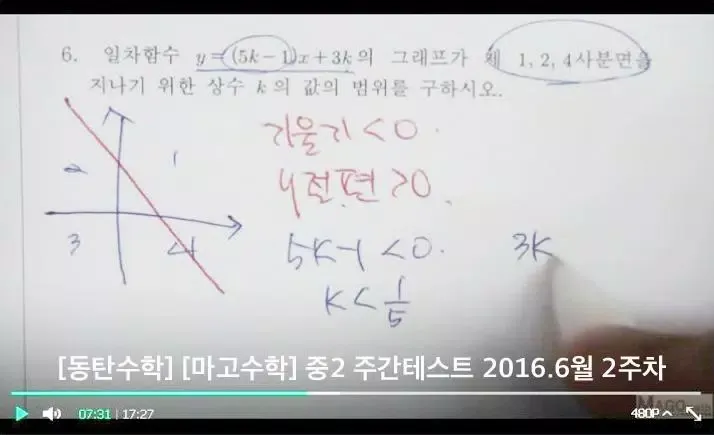 6. 일차함수 y=(5k-1)x+3k의 그래프가 제 1, 2, 4사분면을
지나기 위한 상수 k의 값의 범위를 구하시오.
기울기 < 0.
y절편 > 0.
2 1
3 4
5k-1 < 0. 3k
k < 1/5
[동탄수학] [마고수학] 중2 주간테스트 2016.6월 2주차
07:31 | 17:27 480P